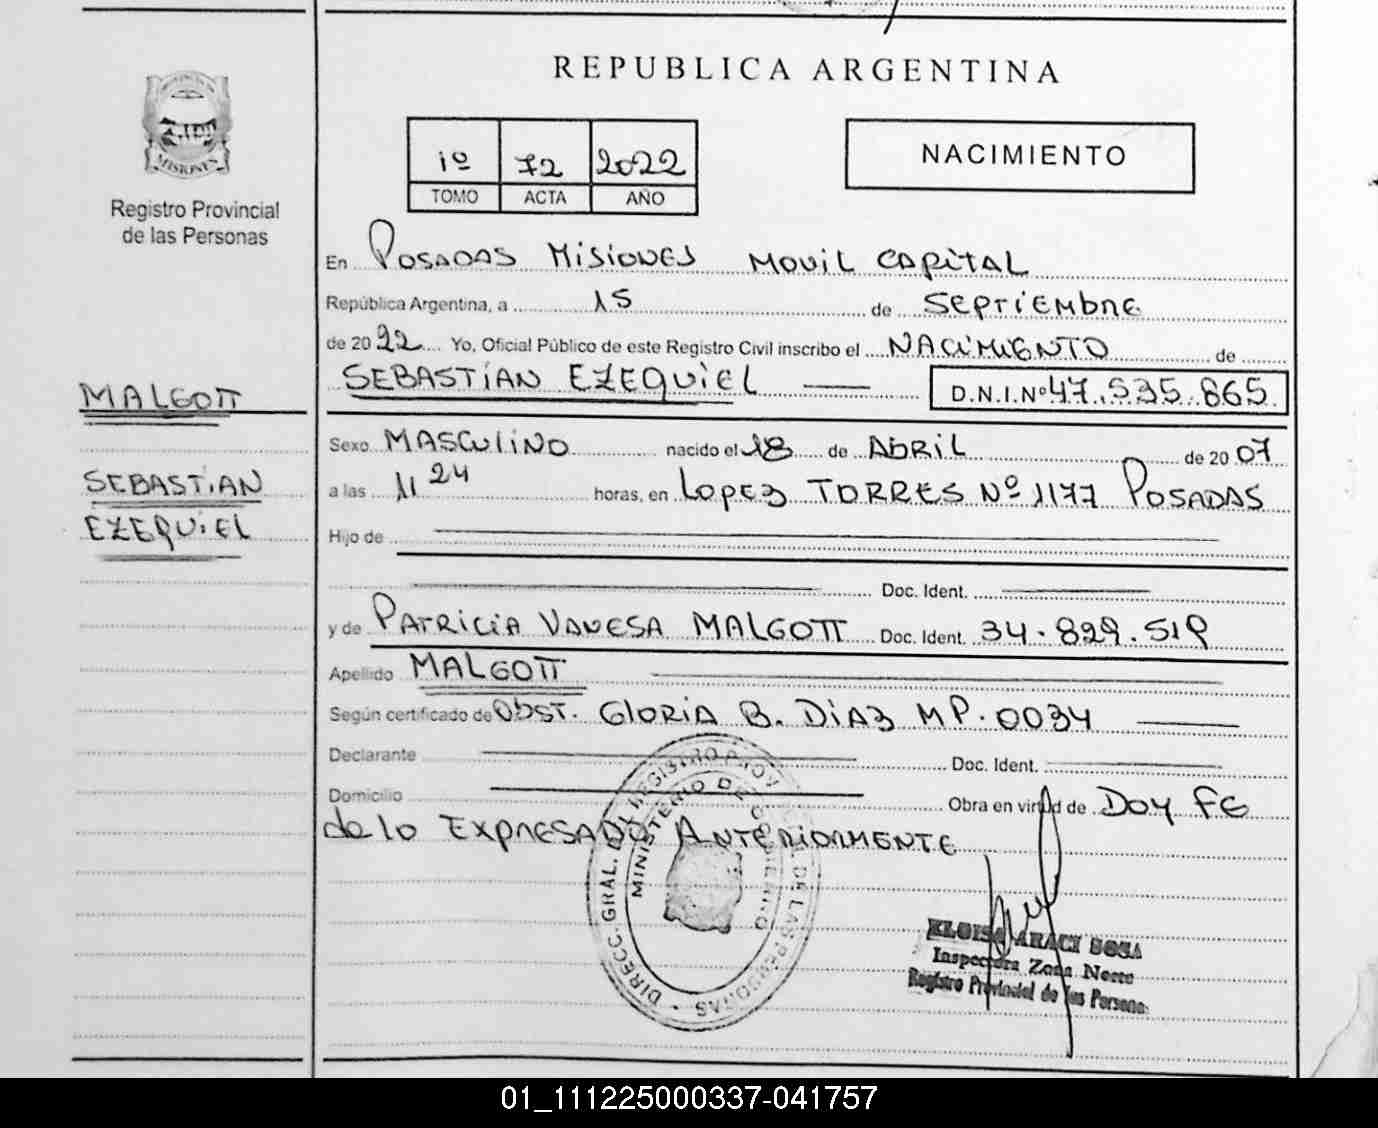 REPUBLICA ARGENTINA
MISIONES
Registro Provincial
de las Personas
1º 72 2022
TOMO ACTA AÑO
NACIMIENTO
En POSADAS MISIONES MOVIL CAPITAL
República Argentina, a 15 de SEPTIEMBRE
de 2022 Yo, Oficial Público de este Registro Civil inscribo el NACIMIENTO de
SEBASTIAN EZEQUIEL D.N.I.Nº 47.535.865
MALGOTT
SEBASTIAN
EZEQUIEL
Sexo MASCULINO nacido el 18 de ABRIL de 2007
a las 11 24 horas, en LOPEZ TORRES Nº 1177 POSADAS
Hijo de
Doc. Ident.
y de PATRICIA VANESA MALGOTT Doc. Ident. 34.829.519
Apellido MALGOTT
Según certificado de OBST. GLORIA B. DIAZ MP. 0034
Declarante Doc. Ident.
Domicilio Obra en virtud de DOY FE
de lo EXPRESADO ANTERIORMENTE
DIRECC. GRAL. DEL REGISTRO PROVINCIAL DE LAS PERSONAS
MINISTERIO DE GOBIERNO
ARACY SOSA
Inspectora Zona
Registro Provincial de las Personas
01_111225000337-041757